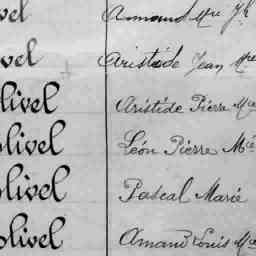 vel Armand Mie Jh
vel Aristide Jean Mie
olivel Aristide Pierre Mie
olivel Léon Pierre Mie
olivel Pascal Marie
olivel Amand Louis Mie